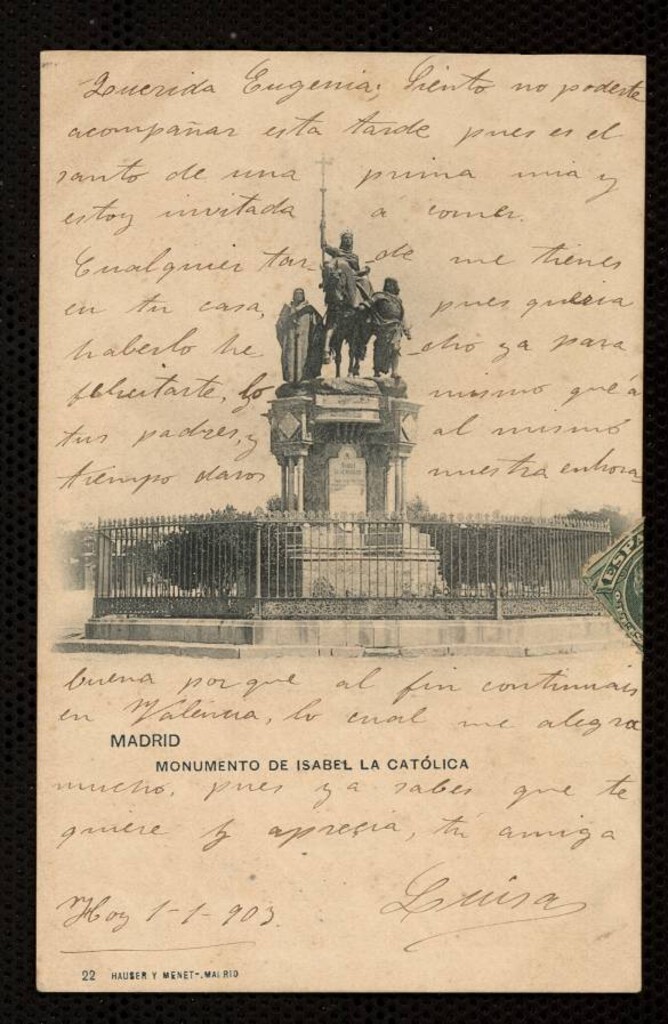 Querida Eugenia; Siento no poderte
acompañar esta tarde pues es el
santo de una prima mia y
estoy invitada á comer.
Cualquier tarde me tienes
en tu casa, pues queria
haberlo hecho ya para
felicitarte, lo mismo que á
tus padres, y al mismo
tiempo daros nuestra enhora
ESPA
buena porque al fin continuais
en Valencia, lo cual me alegra
MADRID
MONUMENTO DE ISABEL LA CATÓLICA
mucho, pues ya sabes que te
quiere y aprecia, tu amiga
Luisa
Hoy 1-1-903.
22 HAUSER Y MENET-.MADRID